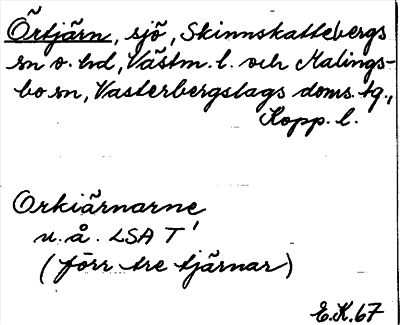 Örtjärn, sjö, Skinnskattebergs
sn o. hd, Västm. l. och Malings-
bo sn, Västerbergslags doms. tg.,
Kopp. l.
Orkiärnarne
u. å. LSA T'
(förr tre tjärnar)
E.K.67